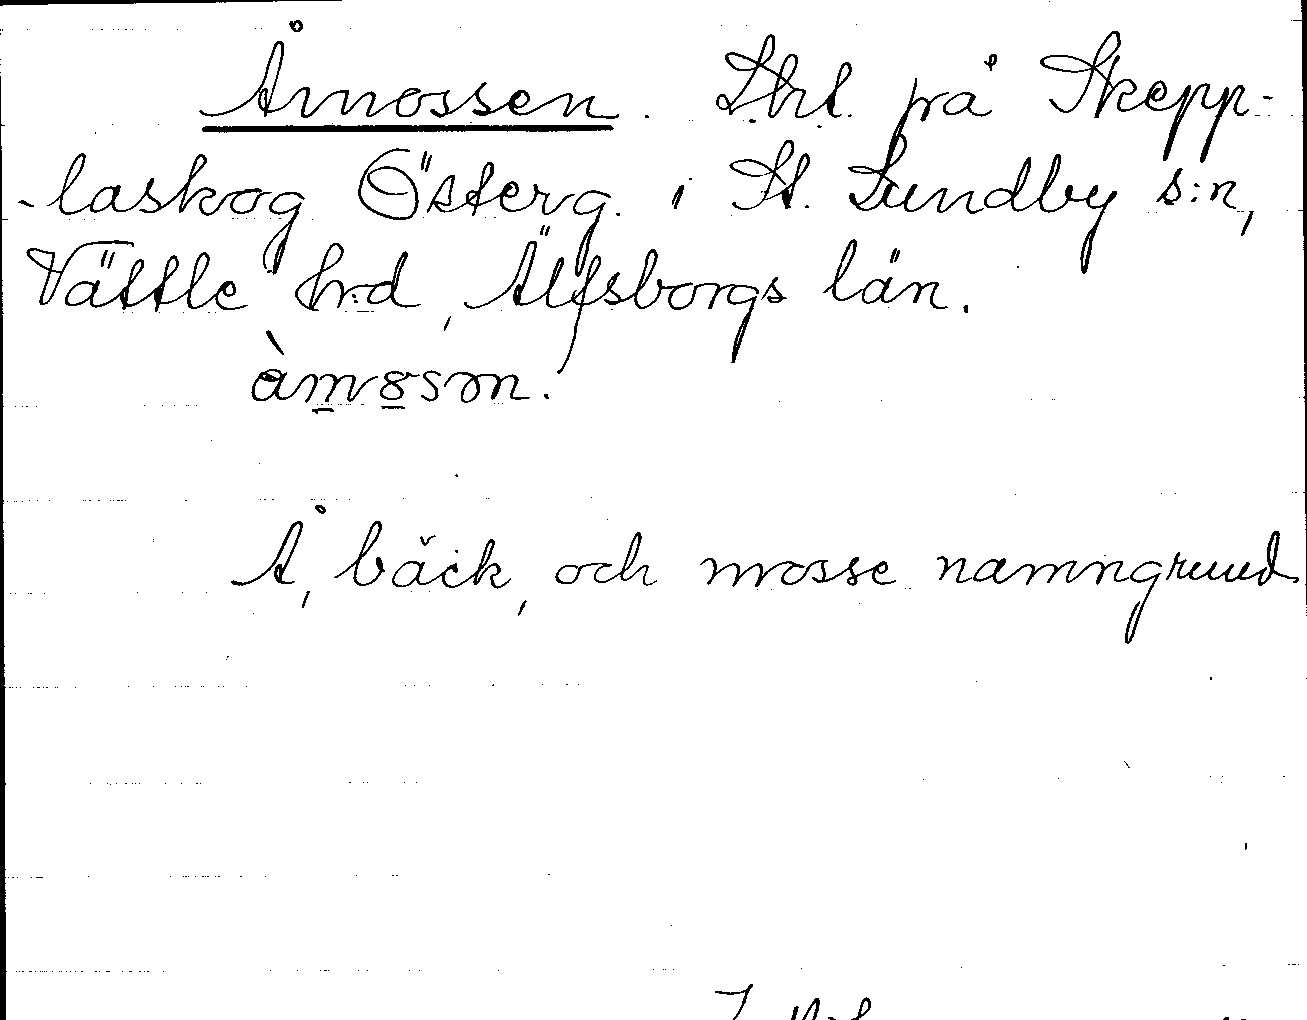 Åmossen. Lht. på Skepp-
-laskog Österg. i St. Lundby s:n,
Vättle hrd, Älfsborgs län.
àmosən.
Å, bäck, och mosse namngrund